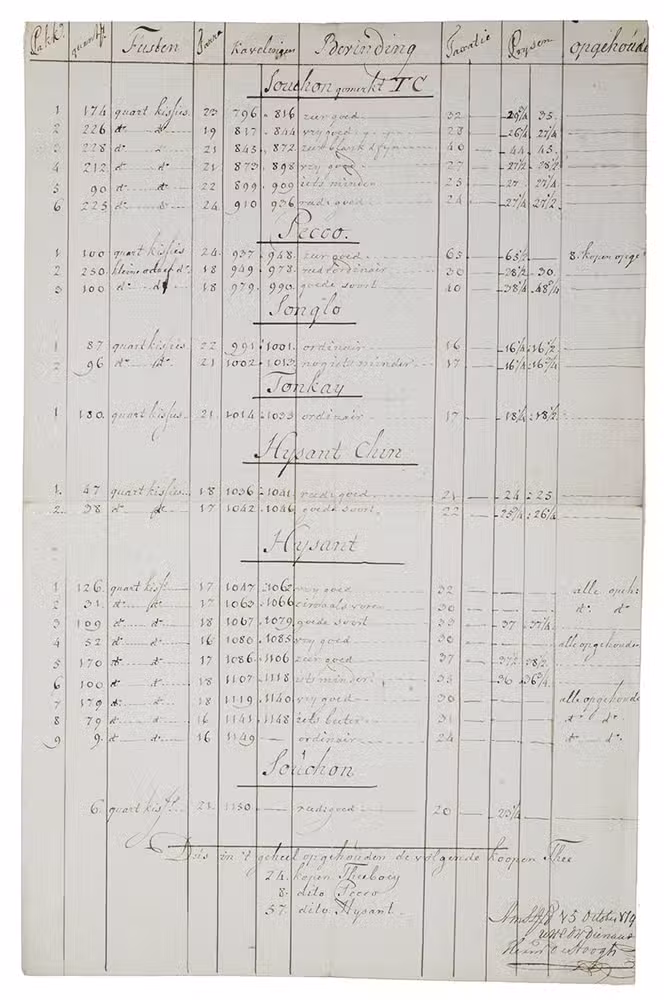 Pakk.s quantit. Fusten Tarra Kavelingen Bevinding Taxatie Prysen opgehoude
Souchon gemerkt TC
1 174 quart kisjies 23 796 - 816 zeer goed 32 35.
2 226 d.o d.o 19 817 - 844 vry goed 28 26¼ 27¼
3 228 d.o d.o 21 845 - 872 zeer blank & fyn 40 44 45
4 212 d.o d.o 21 873 - 898 vry goed 27 27½ 28½
5 90 d.o d.o 22 899 - 909 iets minder 25 27 27¼
6 225 d.o d.o 24 910 936 reds goed 24 27¼ 27½
Pecco.
1 100 quart kisjies 24 937 - 948 zeer goed 65 65½ 8. kopen opge
2 250 kleine d.o 18 949 - 978 ordinair 30 28½ 30
3 100 d.o d.o 18 979 - 990 goede soort 40 38¼ 48¼
Songlo
1 87 quart kisjies 22 991 - 1001 ordinair 16 16¼ 16½
2 96 d.o d.o 21 1002 - 1013 nog iets minder 17 16¼ 16¾
Tonkay
1 180 quart kisjies 21 1014 - 1035 ordinair 17 18¼ 18½
Hysant Chin
1. 47 quart kisjies 18 1036 - 1041 reds goed 21 24 25
2. 38 d.o d.o 17 1042 - 1046 goede soort 22 25¼ 26¼
Hysant
1 126 quart kisj. 17 1047 - 1062 vry goed 32 alle opeh:
2 31 d.o d.o 17 1063 - 1066 als voren 30 d.o d.o
3 109 d.o d.o 18 1067 - 1079 goede soort 35 37 37¼
4 52 d.o d.o 16 1080 - 1085 vry goed 30 alle opgehoude
5 170 d.o d.o 17 1086 - 1106 zeer goed 37 37½ 38½
6 100 d.o d.o 18 1107 - 1118 iets minder 34 36 36¼
7 179 d.o d.o 18 1119 - 1140 vry goed 30 alle opgehoude
8 79 d.o d.o 16 1141 - 1148 iets beter 31 d.o d.o
9 9 d.o d.o 16 1149 ordinair 24 d.o d.o
Souchon
6 quart kisj. 21 1150 reds goed 20 23¼
Dus in 't geheel opgehouden de volgende koopen Thee
24. kopen Theeboey
8. dito Pecco
57. dito Hysant.
5 October
UWE DW Dienaar
de Hoogh